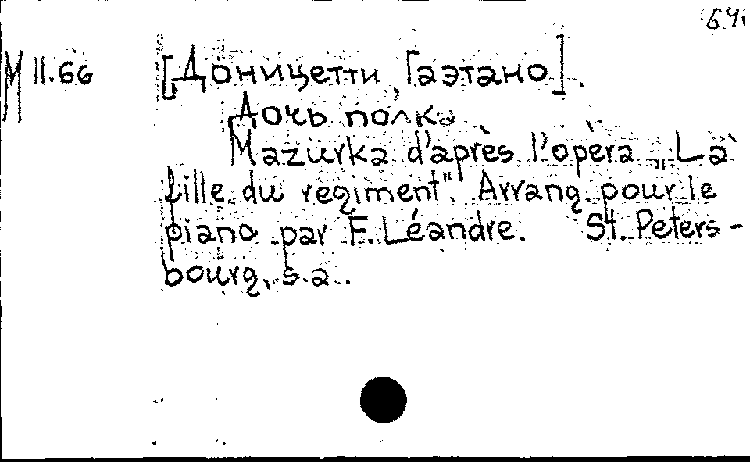 M II.66 [Доницетти, Гаэтано].
Дочь полка
Mazurka d'après l'opèra „La
fille du regiment". Arrang. pour le
piano par F. Léandre. St. Peters-
bourg, s.a.